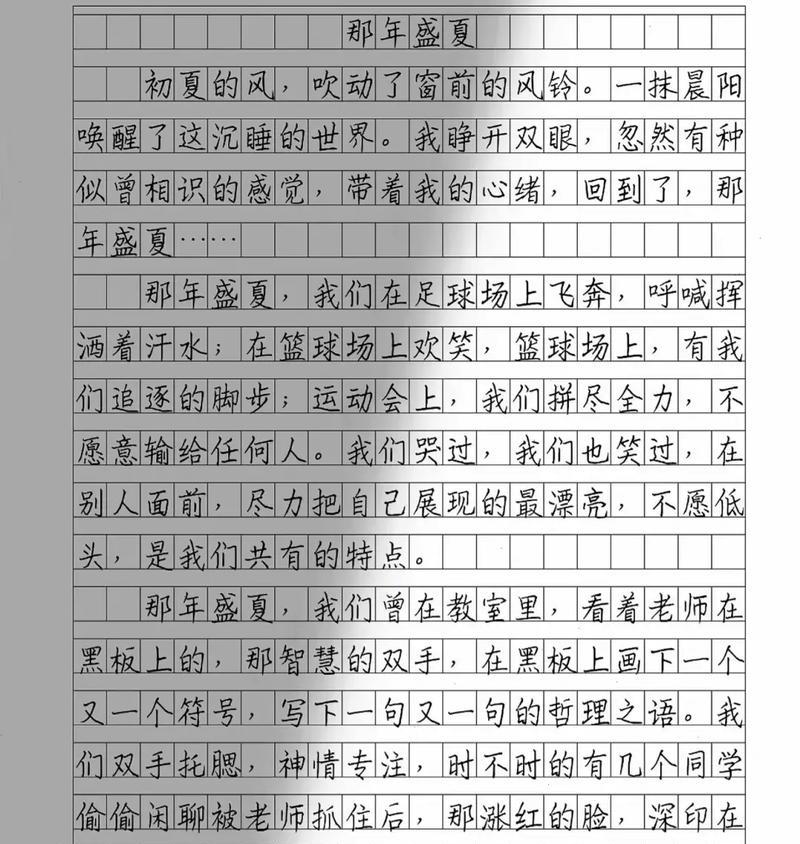 那年盛夏
初夏的风，吹动了窗前的风铃。一抹晨阳
唤醒了这沉睡的世界。我睁开双眼，忽然有种
似曾相识的感觉，带着我的心绪，回到了，那
年盛夏……
那年盛夏，我们在足球场上飞奔，呼喊挥
洒着汗水；在篮球场上欢笑，篮球场上，有我
们追逐的脚步；运动会上，我们拼尽全力，不
愿意输给任何人。我们哭过，我们也笑过，在
别人面前，尽力把自己展现的最漂亮，不愿低
头，是我们共有的特点。
那年盛夏，我们曾在教室里，看着老师在
黑板上的，那智慧的双手，在黑板上画下一个
又一个符号，写下一句又一句的哲理之语。我
们双手托腮，神情专注，时不时的有几个同学
偷偷闲聊被老师抓住后，那涨红的脸，深印在